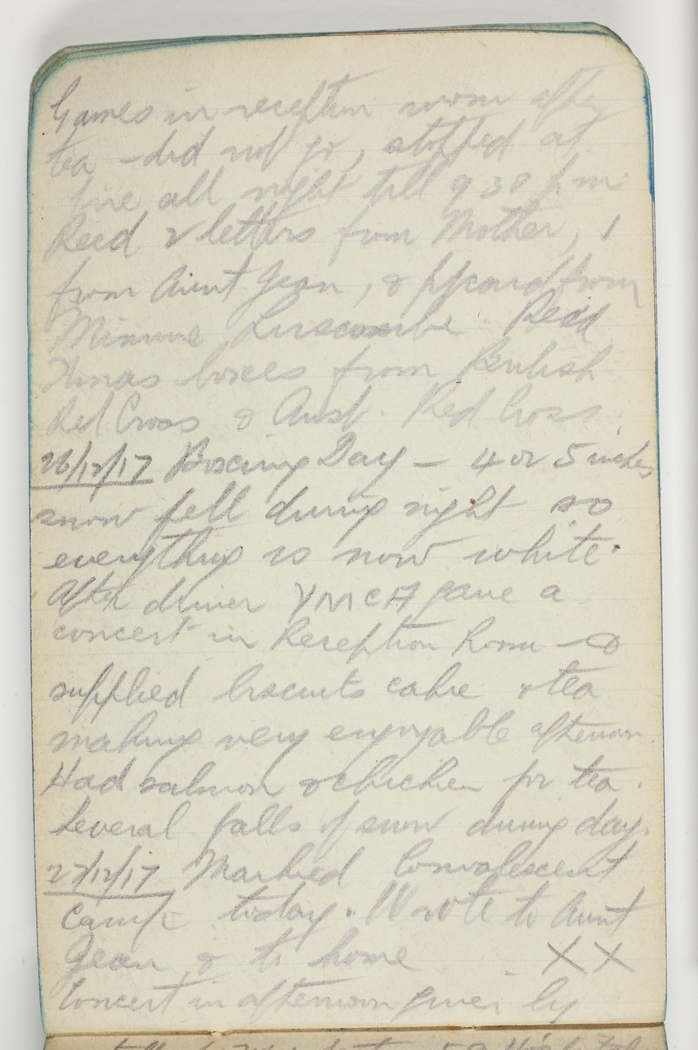 Games in reception room after
tea - did not go, stopped at
fire all night till 9 30 pm
Recd 2 letters from Mother, 1
from Aunt Jean, & p/card from
Minnie Luscombe. Recd
Xmas boxes from British
Red Cross & Aust. Red Cross.
26/12/17 Boxing Day - 4 or 5 inches
snow fell during night so
everything is now white.
After dinner YMCA gave a
concert in Reception Room - &
supplied biscuits cake & tea
making very enjoyable afternoon.
Had salmon & chicken for tea.
Several falls of snow during day.
27/12/17 Marked Convalescent
camp today. Wrote to Aunt
Jean & to home XX
Concert in afternoon given by